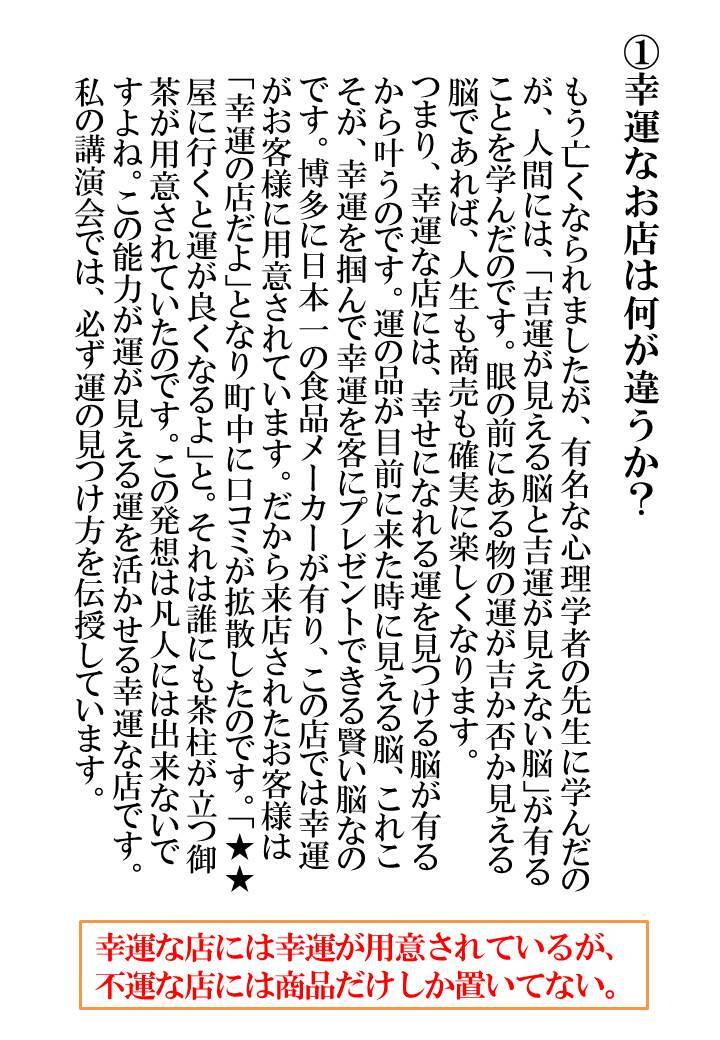 ①幸運なお店は何が違うか？
もう亡くなられましたが、有名な心理学者の先生に学んだの
が、人間には、「吉運が見える脳と吉運が見えない脳」が有る
ことを学んだのです。眼の前にある物の運が吉か否か見える
脳であれば、人生も商売も確実に楽しくなります。
つまり、幸運な店には、幸せになれる運を見つける脳が有る
から叶うのです。運の品が目前に来た時に見える脳、これこ
そが、幸運を掴んで幸運を客にプレゼントできる賢い脳なの
です。博多に日本一の食品メーカーが有り、この店では幸運
がお客様に用意されています。だから来店されたお客様は
「幸運の店だよ」となり町中に口コミが拡散したのです。「★★
屋に行くと運が良くなるよ」と。それは誰にも茶柱が立つ御
茶が用意されていたのです。この発想は凡人には出来ないで
すよね。この能力が運が見える運を活かせる幸運な店です。
私の講演会では、必ず運の見つけ方を伝授しています。
幸運な店には幸運が用意されているが、
不運な店には商品だけしか置いてない。